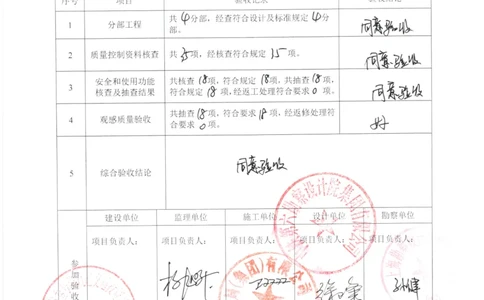 序号 项目 验收记录 验收结论
1 分部工程 共4分部，经查符合设计及标准规定4分部。 同意验收
2 质量控制资料核查 共15项，经核查符合规定15项。 同意验收
3 安全和使用功能核查及抽查结果 共核查18项，符合规定18项，共抽查18项，符合规定18项，经返工处理符合要求0项。 同意验收
4 观感质量验收 共抽查18项，符合要求18项，经返修处理符合要求0项。 好
5 综合验收结论 同意验收
建设单位 监理单位 施工单位 设计单位 勘察单位
参加验收
项目负责人： 项目负责人： 项目负责人： 项目负责人： 项目负责人：